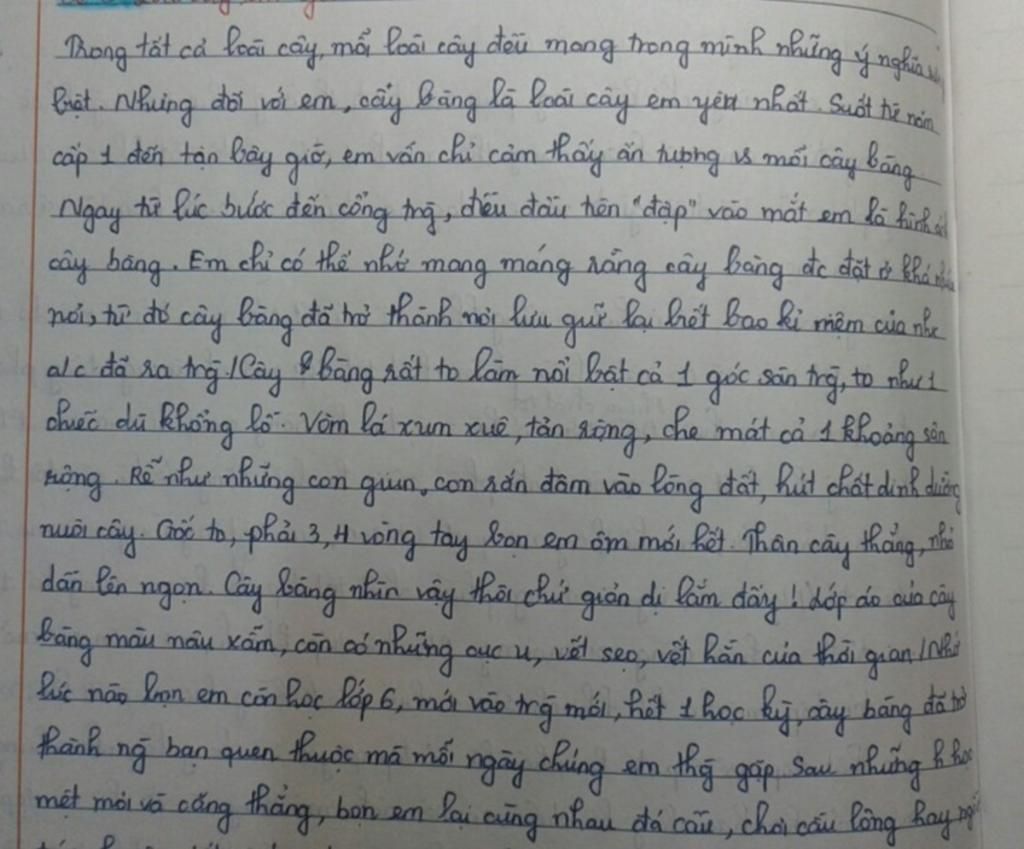 Trong tất cả loài cây, mỗi loài cây đều mang trong mình những ý nghĩa
biệt. Nhưng đối với em, cây bàng là loài cây em yêu nhất. Suốt từ năm
cấp 1 đến tận bây giờ, em vẫn chỉ cảm thấy ấn tượng vs mỗi cây bàng.
Ngay từ lúc bước đến cổng trg, điều đầu tiên "đập" vào mắt em là hình
cây bàng. Em chỉ có thể nhớ mang máng rằng cây bàng đc đặt ở khá
rồi, từ đó cây bàng đã trở thành nơi lưu giữ lại hết bao kỉ niệm của
a/c đã ra trg. / Cây bàng rất to làm nổi bật cả 1 góc sân trg, to như 1
chiếc dù khổng lồ. Vòm lá xum xuê, tán rộng, che mát cả 1 khoảng sân
rộng. Rễ như những con giun, con rắn đâm vào lòng đất, hút chất dinh dưỡng
nuôi cây. Gốc to, phải 3, 4 vòng tay bọn em ôm mới hết. Thân cây thẳng, nhỏ
dần lên ngọn. Cây bàng nhìn vậy thôi chứ giản dị lắm đấy! Lớp áo của cây
bàng màu nâu xẫm, còn có những cục u, vết sẹo, vết hằn của thời gian / Nhớ
lúc nào bọn em còn học lớp 6, mới vào trg mới, hết 1 học kỳ, cây bàng đã trở
thành ng bạn quen thuộc mà mỗi ngày chúng em thg gặp. Sau những h học
mệt mỏi và căng thẳng, bọn em lại cùng nhau đá cầu, chơi cầu lông hay